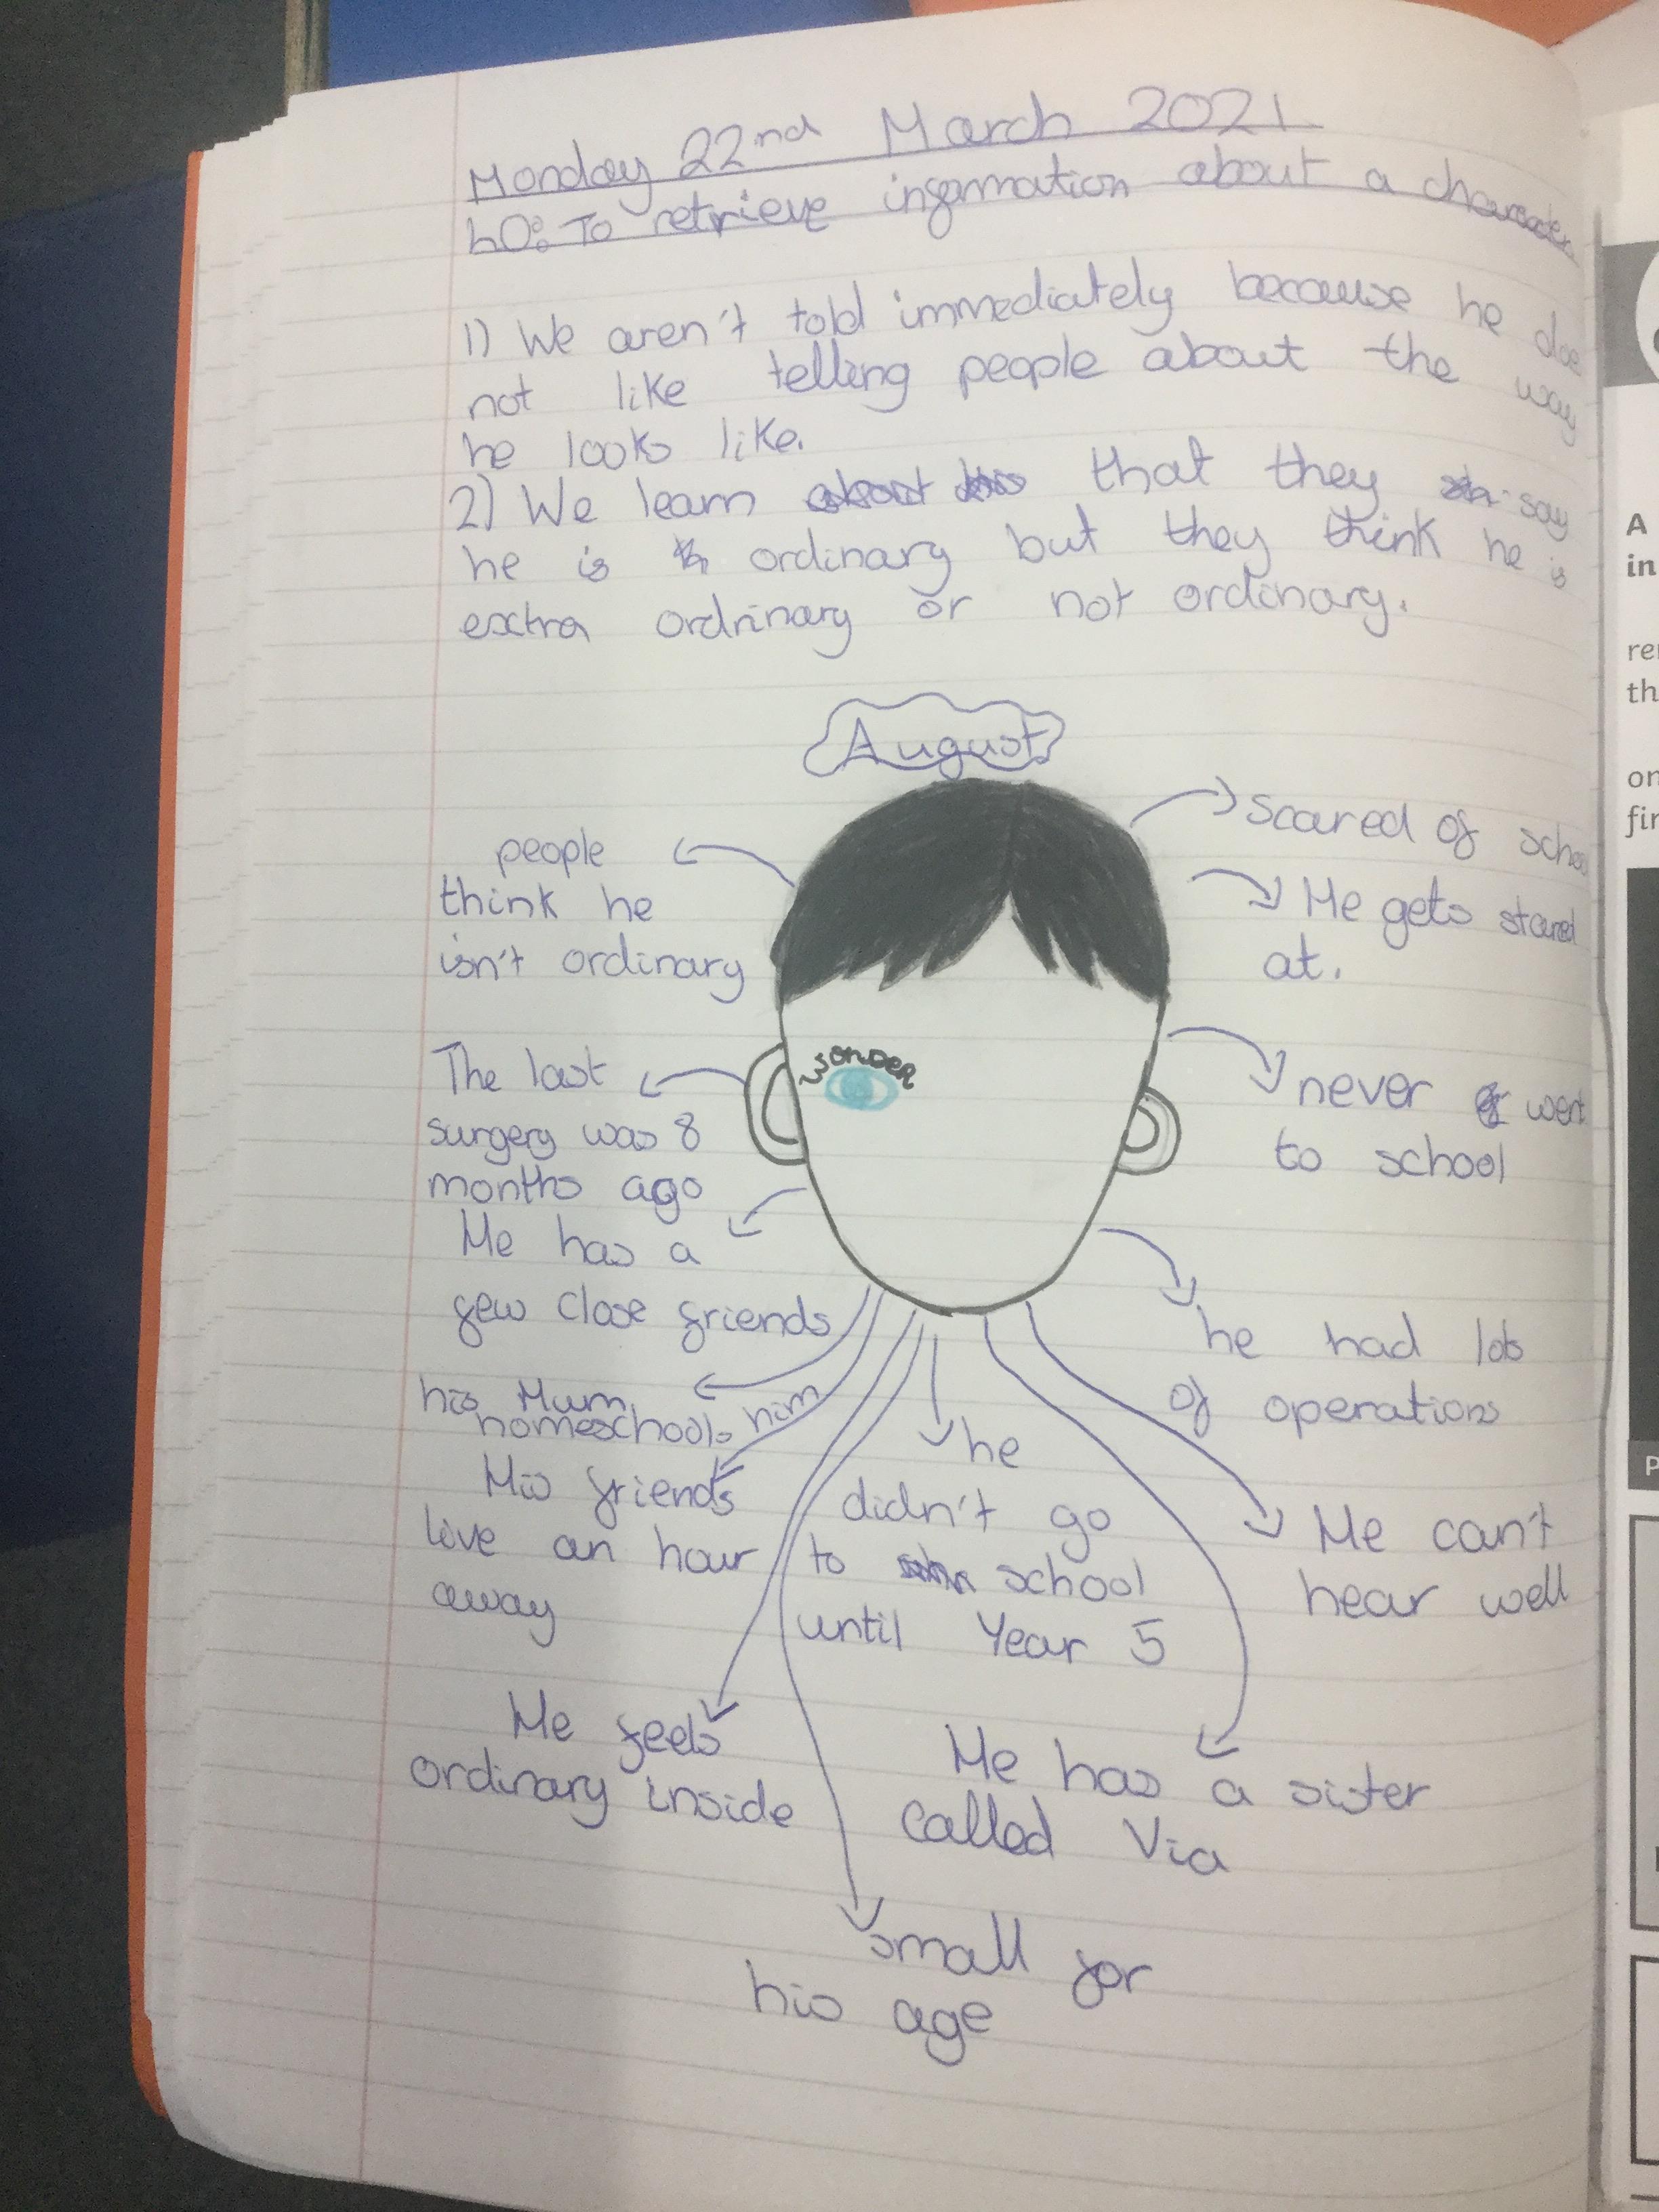 Monday 22nd March 2021
LO: To retrieve information about a character
1) We aren't told immediately because he doe
not like telling people about the way
he looks like.
2) We learn that they say
he is ordinary but they think he is
extra ordrinary or not ordinary.
August
people
think he
isn't ordinary
The last
surgery was 8
months ago
He has a
few close friends
his Mum
homeschools him
His friends
live an hour
away
He feels
ordinary inside
Small for
his age
WONDER
he
didn't go
to school
until Year 5
He has a sister
called Via
Scared of school
He gets stared
at.
never went
to school
he had lots
of operations
He can't
hear well
A
in
th
on
P